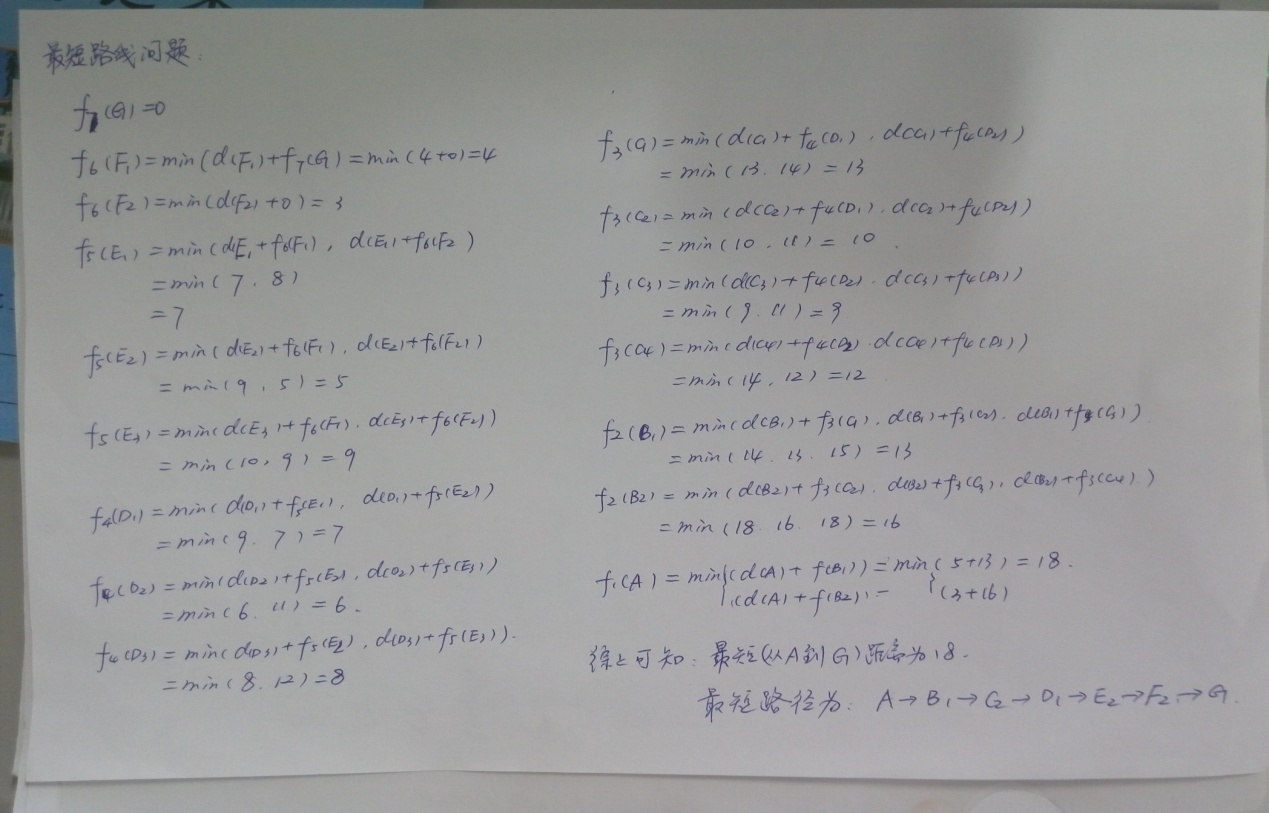 最短路线问题:
f7(G)=0
f6(F1)=min(d(F1)+f7(G)=min(4+0)=4
f6(F2)=min(d(F2)+0)=3
f5(E1)=min(d(E1+f6(F1), d(E1)+f6(F2)
=min(7.8)
=7
f5(E2)=min(d(E2)+f6(F1), d(E2)+f6(F2))
=min(9,5)=5
f5(E3)=min(d(E3)+f6(F1).d(E3)+f6(F2))
=min(10,9)=9
f4(D1)=min(d(D1)+f5(E1), d(D1)+f5(E2))
=min(9.7)=7
f4(D2)=min(d(D2)+f5(E2), d(D2)+f5(E3))
=min(6.11)=6.
f4(D3)=min(d(D3)+f5(E2), d(D3)+f5(E3)).
=min(8.12)=8
f3(C1)=min(d(C1)+f4(D1).d(C1)+f4(D2))
=min(13.14)=13
f3(C2)=min(d(C2)+f4(D1).d(C2)+f4(D2))
=min(10.11)=10.
f3(C3)=min(d(C3)+f4(D2).d(C3)+f4(D3))
=min(9.11)=9
f3(C4)=min(d(C4)+f4(D2).d(C4)+f4(D3))
=min(14,12)=12
f2(B1)=min(d(B1)+f3(C1).d(B1)+f3(C2).d(B1)+f3(C3)).
=min(14.13.15)=13
f2(B2)=min(d(B2)+f3(C2).d(B2)+f3(C3),d(B2)+f3(C4))
=min(18.16.18)=16
f1(A)=min{(d(A)+f(B1))=min{(5+13)=18.
(d(A)+f(B2))= (3+16)
综上可知:最短(从A到G)距离为18.
最短路径为:A→B1→C2→D1→E2→F2→G.